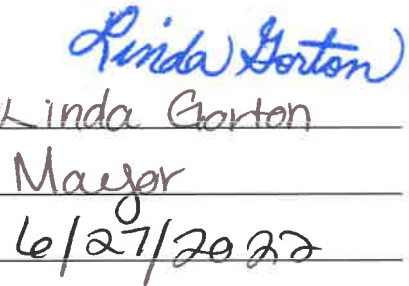 Linda Gorton
Linda Gorton
Mayor
6/27/2022